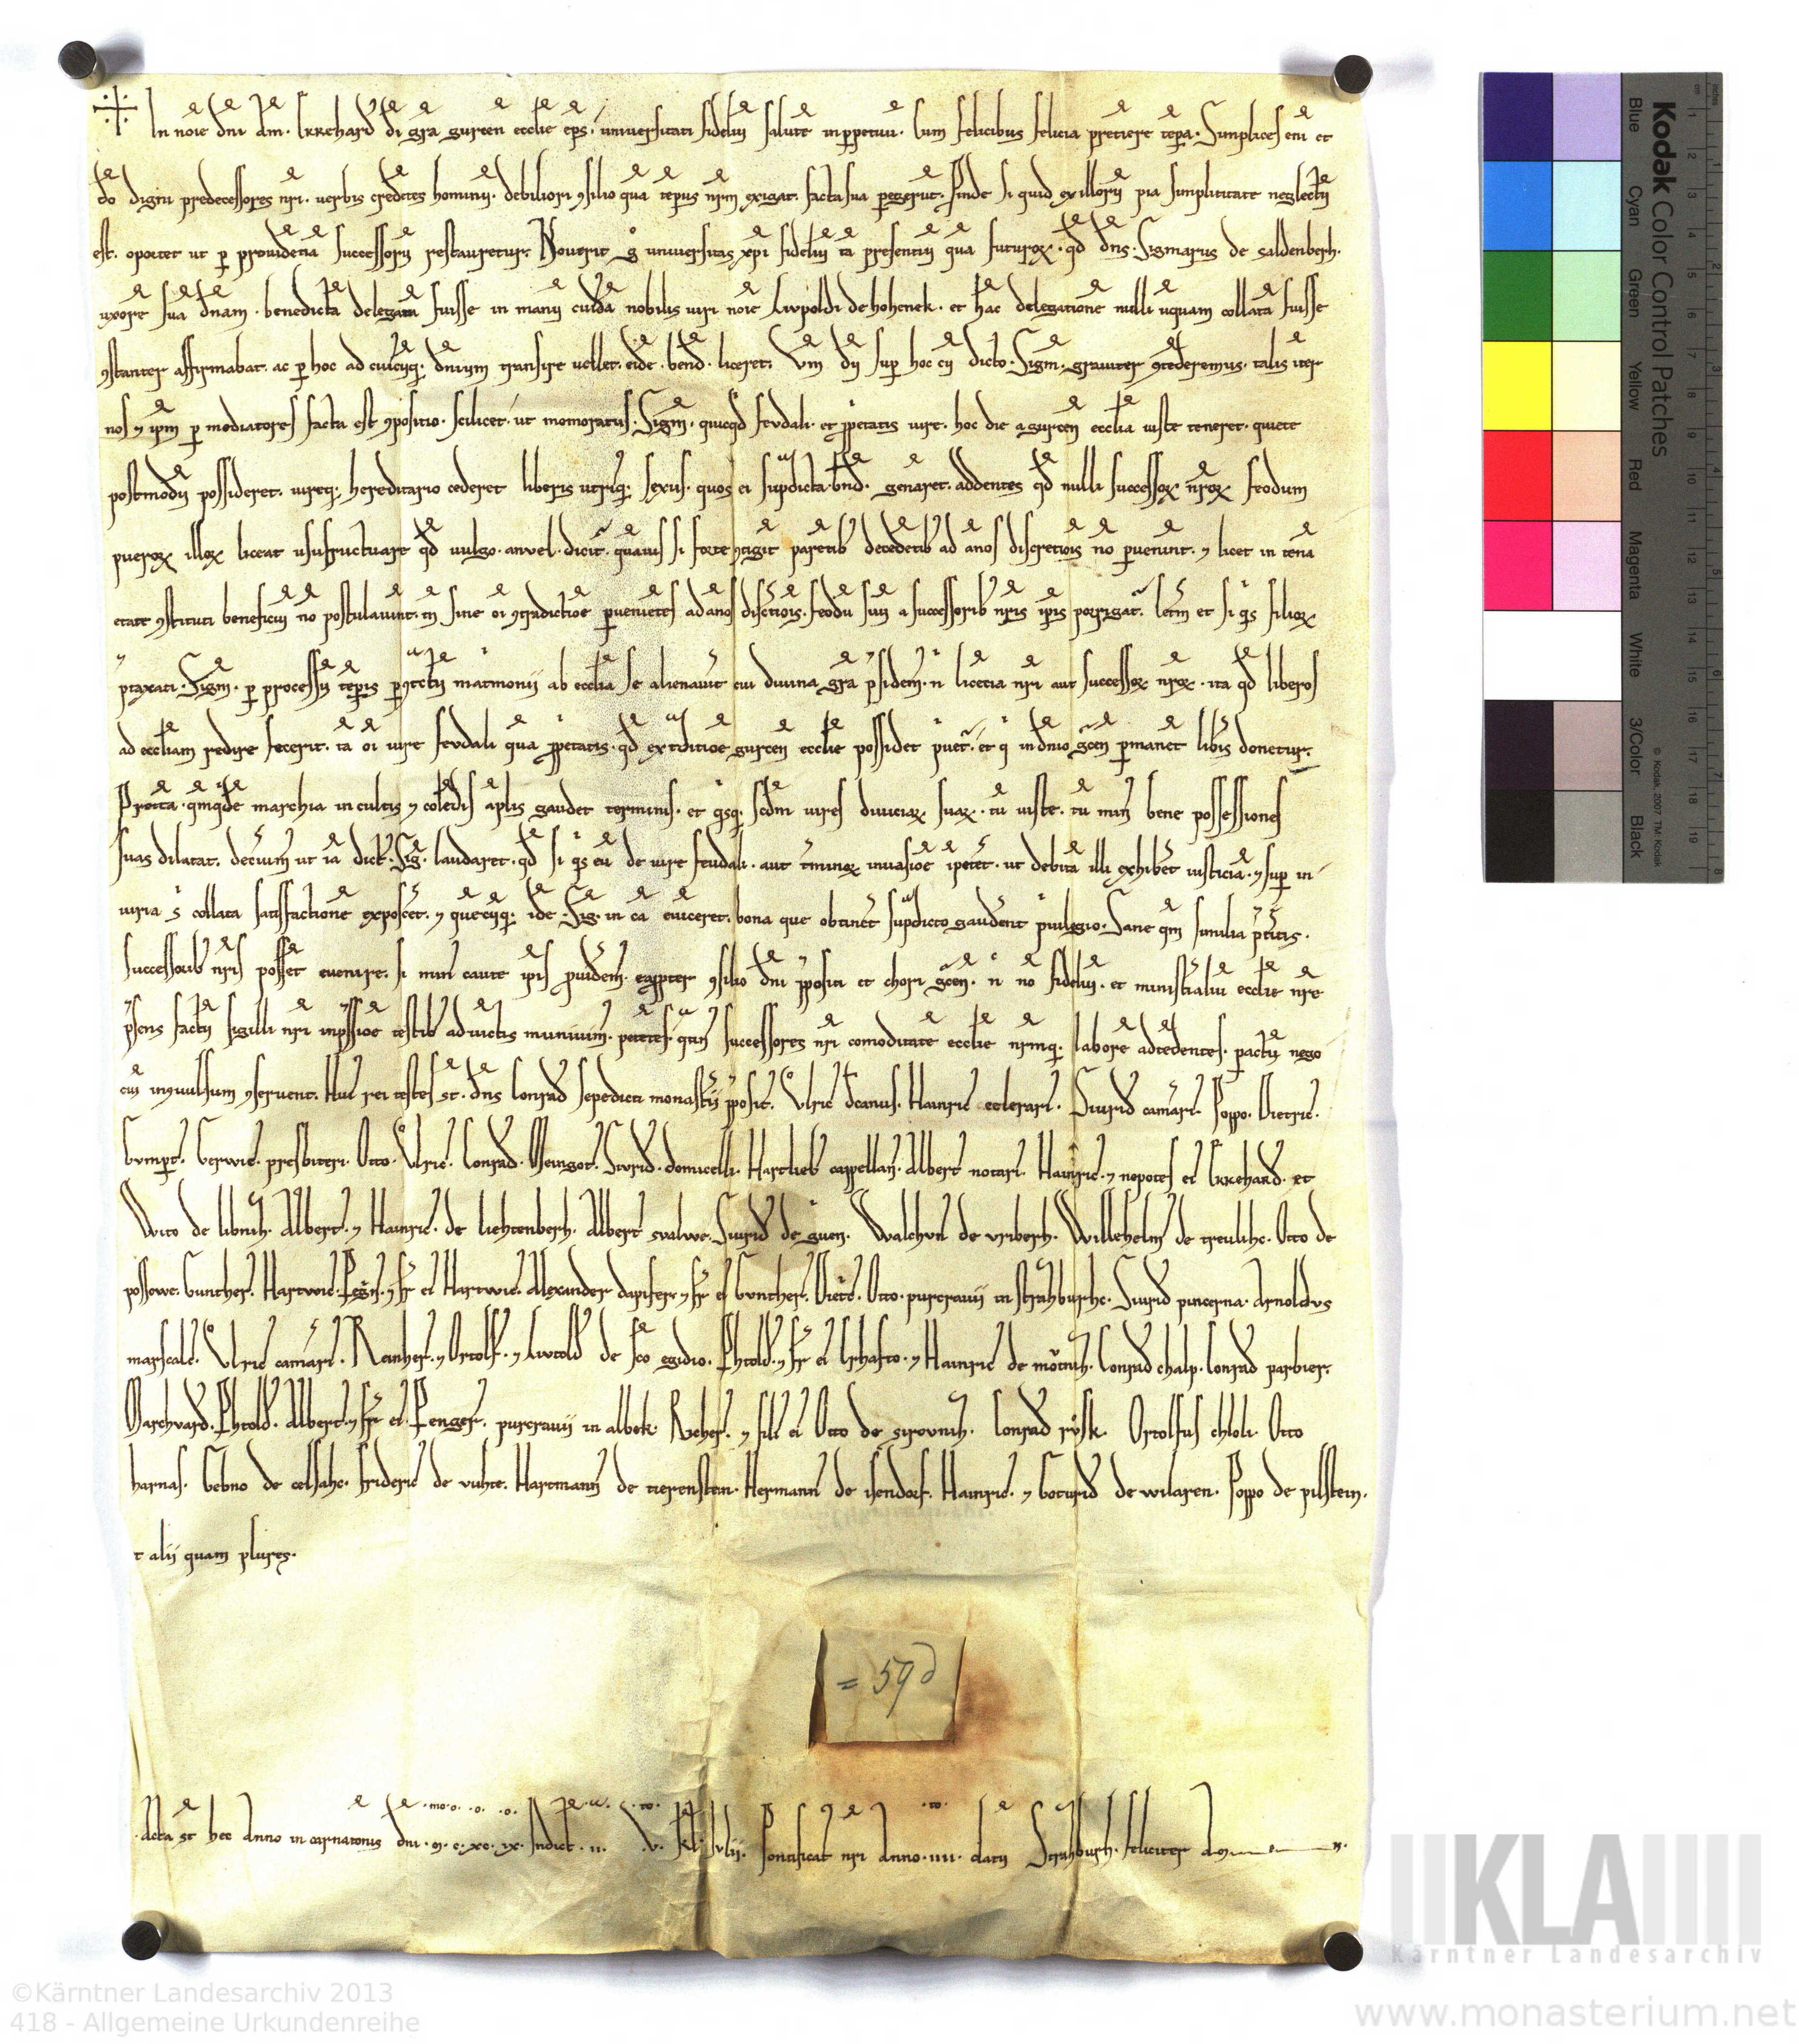 In noie dni am. Ekkehard di gra gurcen ecclie eps. universitati fidelium salute inperpetuu. Cum felicibus felicia preterire tepora. Simplices eni et
do digni predecessores nri. uerbis credetes hominu. debiliori 9silio qua tepus nrm exigat. facta sua pegerut. Inde si quid ex illoru pia simplicitate neglectu
est. oportet ut p prouidetia successoru restauretur. Nouerit g universitas xpi fideliu ta presentiu qua futuroꝝ. qd dns. Sigmarus de saldenberh.
uxore sua dnam. benedicta delegata fuisse in manu cuida nobilis uiri noie Livpoldi de hohenek. et hac delegatione nulli uquam collata fuisse
9stanter affirmabat. ac p hoc ad cuicuq. dnium transire uellet. eide. bend. liceret. Vm du sup hoc cu dicto. Sigm. grauiter 9tederemus. talis iter
nos 7 ipm p mediatores facta est 9positio. scilicet. ut memoratus. Sigm. quicqd feudali. et ppetatis iure. hoc die a gurcen ecclia iuste teneret. quiete
postmodu possideret. iureq. hereditario cederet liberis utriq. sexus. quos ei supdicta. bnd. genaret. addentes qd nulli successoꝝ nroꝝ feodum
pueroꝝ illoꝝ liceat usufructuare qd uulgo. anvel. dicit. quauis si forte 9tigit paretib decedetib ad anos discretiois no peuenint. 7 licet in tena
etate 9stituti beneficiu no postulauint. tn sine oi 9tradictioe peuenietes ad anos disctiois. feodu suu a successorib nris ipis porrigat. Cetm et si qs filioꝝ
ptaxati. Sigm. p processu tepis p 9tctu matmonii ab ecclia se alienauit cui diuina gra psidem. n licetia nri aut successoꝝ nroꝝ. ita qd liberos
ad eccliam redire fecerit. ta oi iure feudali qua ppetatis. qd ex tditioe gurcen ecclie possidet puet. et q in dnio gcen pmanet libis donetur.
Preta. qmqde marchia in cultis 7 coledis aplis gaudet terminis. et qsq. scdm uires diuiciaꝝ suaꝝ. tu iuste. tu min bene possessiones
suas dilatat. decuim ut ia dict. Sig. laudaret. qd si qs eu de iure feudali. aut tminoꝝ inuasioe ipetet. ut debita illi exhibet iusticia. 7 sup in-
iuria s collata satisfactione exposcet. 7 quecuq. ide. Sig. in ea euiceret. bona que obtinet supdicto gaudent puilegio. Sane qm similia ptitis.
successorib nris posset euenire. si min caute ipis puidem. eappter 9silio dni ppositi et chori gcen. n no fideliu. et ministialiu ecclie nre
psens factu sigilli nri inpssioe testib aduictis muniuim. petetes. qtin successores nri comoditate ecclie nrmq. labore adtedentes. pactu nego
ciu in9uulsum 9seruent. Hui rei testes st. dns Conrad sepedicti monastii pposit. Vlric dcanus. Hainric celerari. Siurid camari. Poppo. Dietric.
Gumpt. Gerwic. presbiteri. Otto. Vlric. Conrad. Meingot. Siurid. domicelli. Hartlieb cappellan. Albert notari. Hainric. 7 nepotes ei Ekkehard. et
Wito de libnih. Albert. 7 Hainric. de liehtenberh. Albert svalwe. Siurid de guen. Walchun de vriberh. Willehelm de treulihc. Otto de
possowe. Gunther. Hartwic. Pegn. 7 fr ei Hartwic. Alexander dapifer 7 fr ei Gunther. Diete. Otto. purcrauii in Strazburhc. Siurid pincerna. Arnoldvs
marscalc. Vlric camari. Reinher. 7 Ortolf. 7 Livtold de sco egidio. Phtold. 7 fr ei Erhafto. 7 Hainric de motnih. Conrad chalp. Conrad parbier.
Marchvard. Phtold. Albert. 7 fr ei. Penger. purcrauii in albek. Rvcher. 7 fili ei Otto de sirovnih. Conrad rvsk. Ortolfus chloli. Otto
harnas. Gebno de celsahc. Frideric de vuhte. Hartmann de tierenstein. Hermann de isendorf. Hainric. 7 Gotfrid de wilaren. Poppo de pilstein.
t alii quam plures.
= 59 d
Acta st hec Anno incarnationis dni. m. c. xc. ix. Indict. ii. V. kl. Ivlii. Pontificat nri Anno. iiii. datu Strazburh. feliciter amen.
Kodak Color Control Patches
Blue Cyan Green Yellow Red Magenta White 3/Color Black
© Kodak, 2007 TM: Kodak
KLA
Kärntner Landesarchiv
©Kärntner Landesarchiv 2013
418 - Allgemeine Urkundenreihe
www.monasterium.net